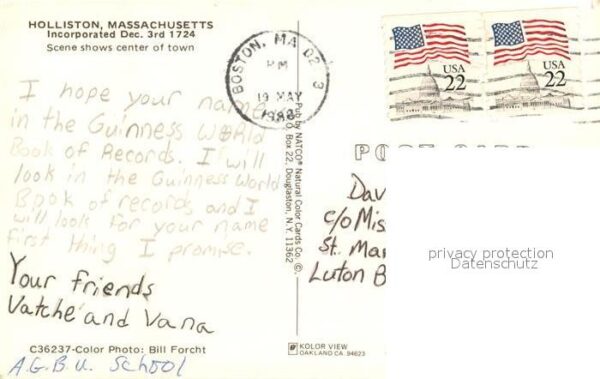 HOLLISTON, MASSACHUSETTS
Incorporated Dec. 3rd 1724
Scene shows center of town
I hope your name is
in the Guinness World
Book of Records. I will
look in the Guinness World
Book of records and I
will look for your name
first thing I promise.
Your friends
Vatche and Vana
C36237-Color Photo: Bill Forcht
A.G.B.U. School
BOSTON, MA 02 3
PM
19 MAY
1988
Pub by NATCO® Natural Color Cards Co. ©,
P.O. Box 22, Douglaston, N.Y. 11362
KOLOR VIEW
OAKLAND CA. 94623
USA
22
USA
22
POST CARD
Dav
c/o Mis
St. Mar
Luton B
privacy protection
Datenschutz